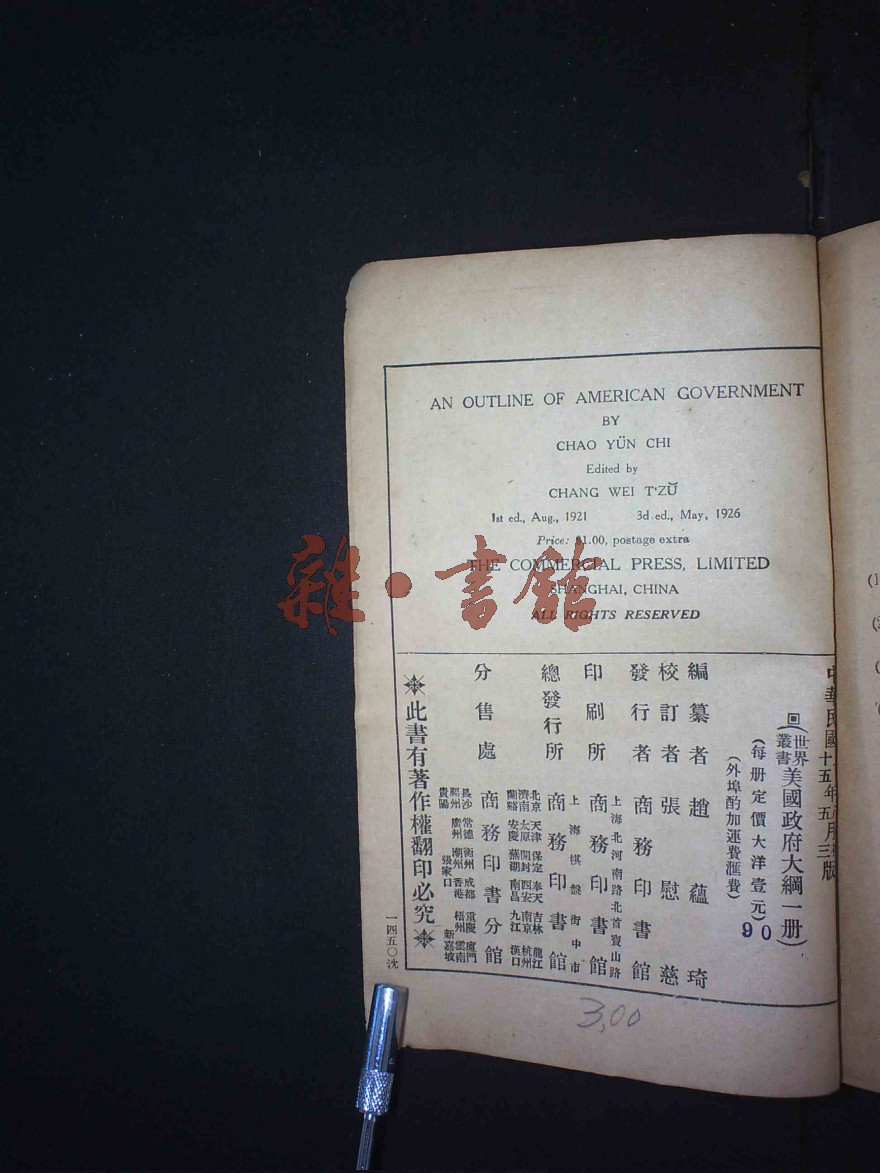 AN OUTLINE OF AMERICAN GOVERNMENT
BY
CHAO YÜN CHI
Edited by
CHANG WEI T‘ZŬ
1st ed., Aug., 1921 3d ed., May, 1926
Price: $1.00, postage extra
THE COMMERCIAL PRESS, LIMITED
SHANGHAI, CHINA
ALL RIGHTS RESERVED
雜·書館
五月三版
回(世界叢書)美國政府大綱一册)
(每册定價大洋壹元)
(外埠酌加運費匯費)
90
編纂者 趙蘊琦
校訂者 張慰慈
發行者 商務印書館
上海北河南路北首寶山路
印刷所 商務印書館
上海棋盤街中市
總發行所 商務印書館
北京 天津 保定 奉天 吉林 龍江
濟南 太原 開封 西安 南京 杭州
蘭谿 安慶 蕪湖 南昌 九江 漢口
分售處 商務印書分館
長沙 常德 衡州 成都 重慶 廈門
福州 廣州 潮州 香港 梧州 雲南
貴陽 張家口 新嘉坡
此書有著作權翻印必究
一四五〇沈
3,00